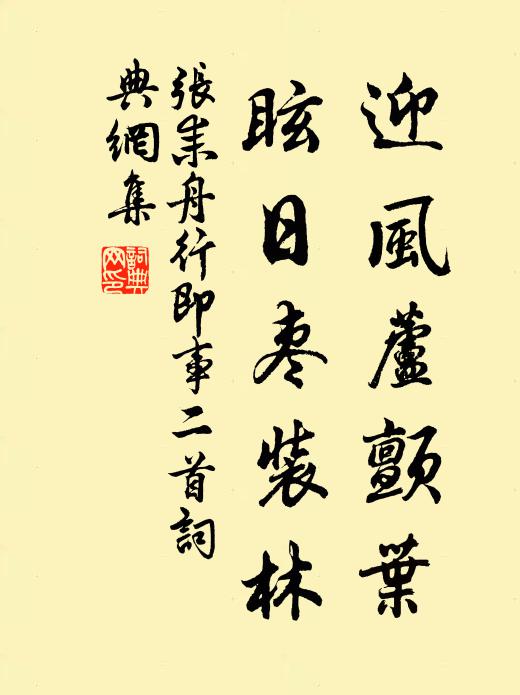 迎風蘆顫葉
眩日枣裝林
張耒舟行即事二首詞
典網集
詞典网印